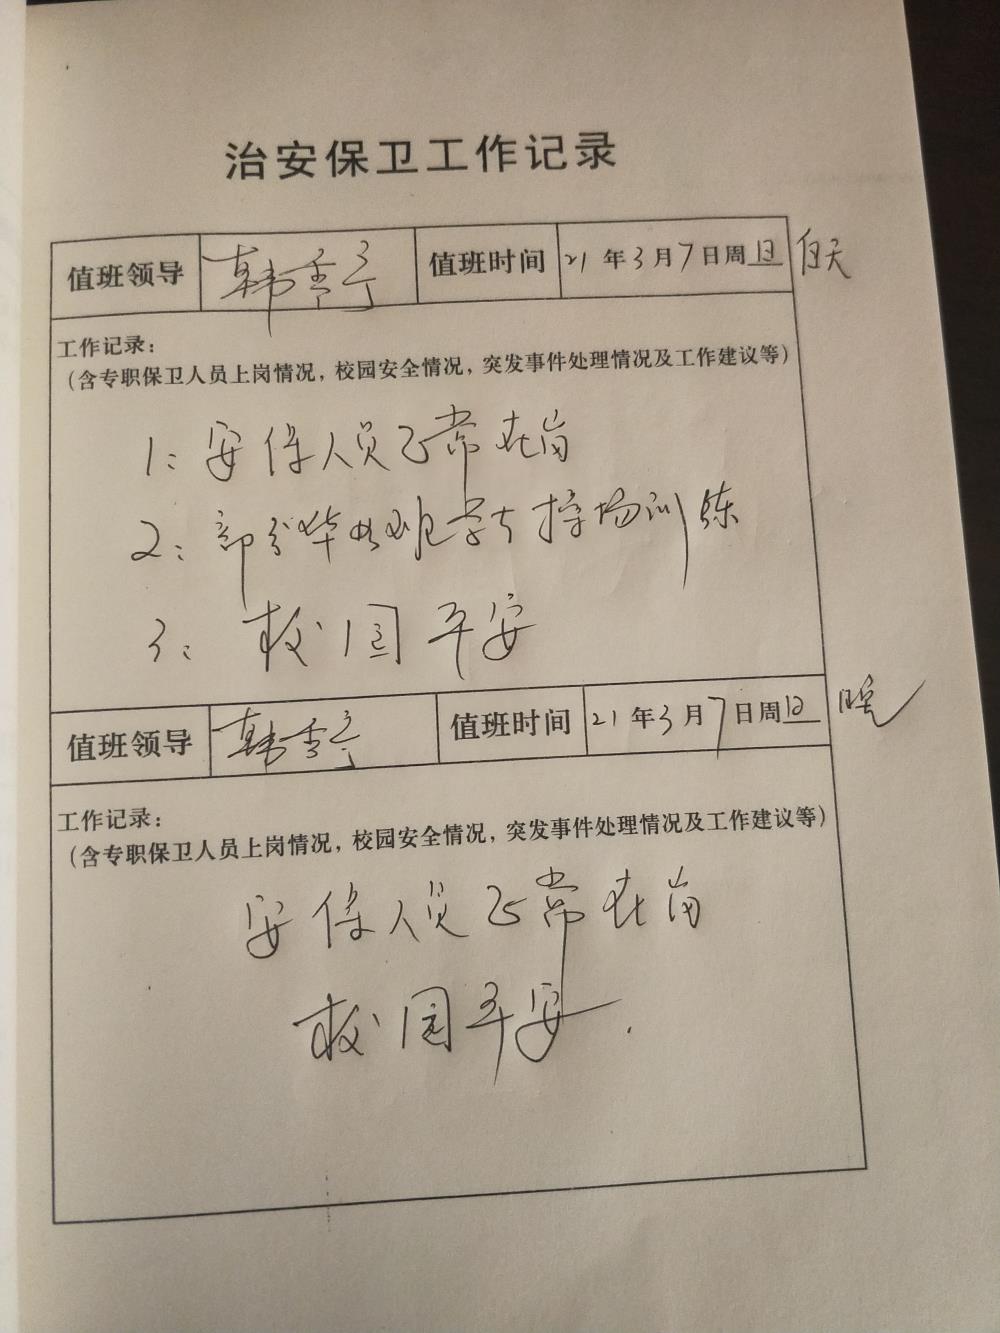 治安保卫工作记录
值班领导 韩 值班时间 21年3月7日周日 白天
工作记录:
(含专职保卫人员上岗情况,校园安全情况,突发事件处理情况及工作建议等)
1: 安保人员正常在岗
2: 部分毕业班学 操场训练
3: 校园平安
值班领导 韩 值班时间 21年3月7日周日 晚
工作记录:
(含专职保卫人员上岗情况,校园安全情况,突发事件处理情况及工作建议等)
安保人员正常在岗
校园平安.